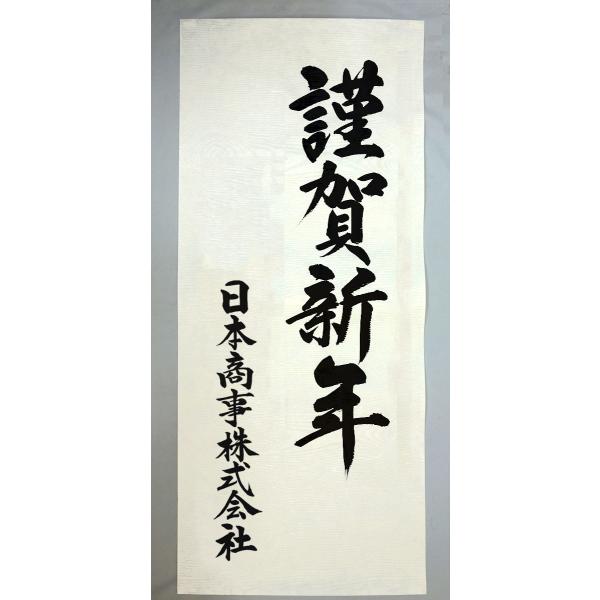 謹賀新年
日本商事株式会社